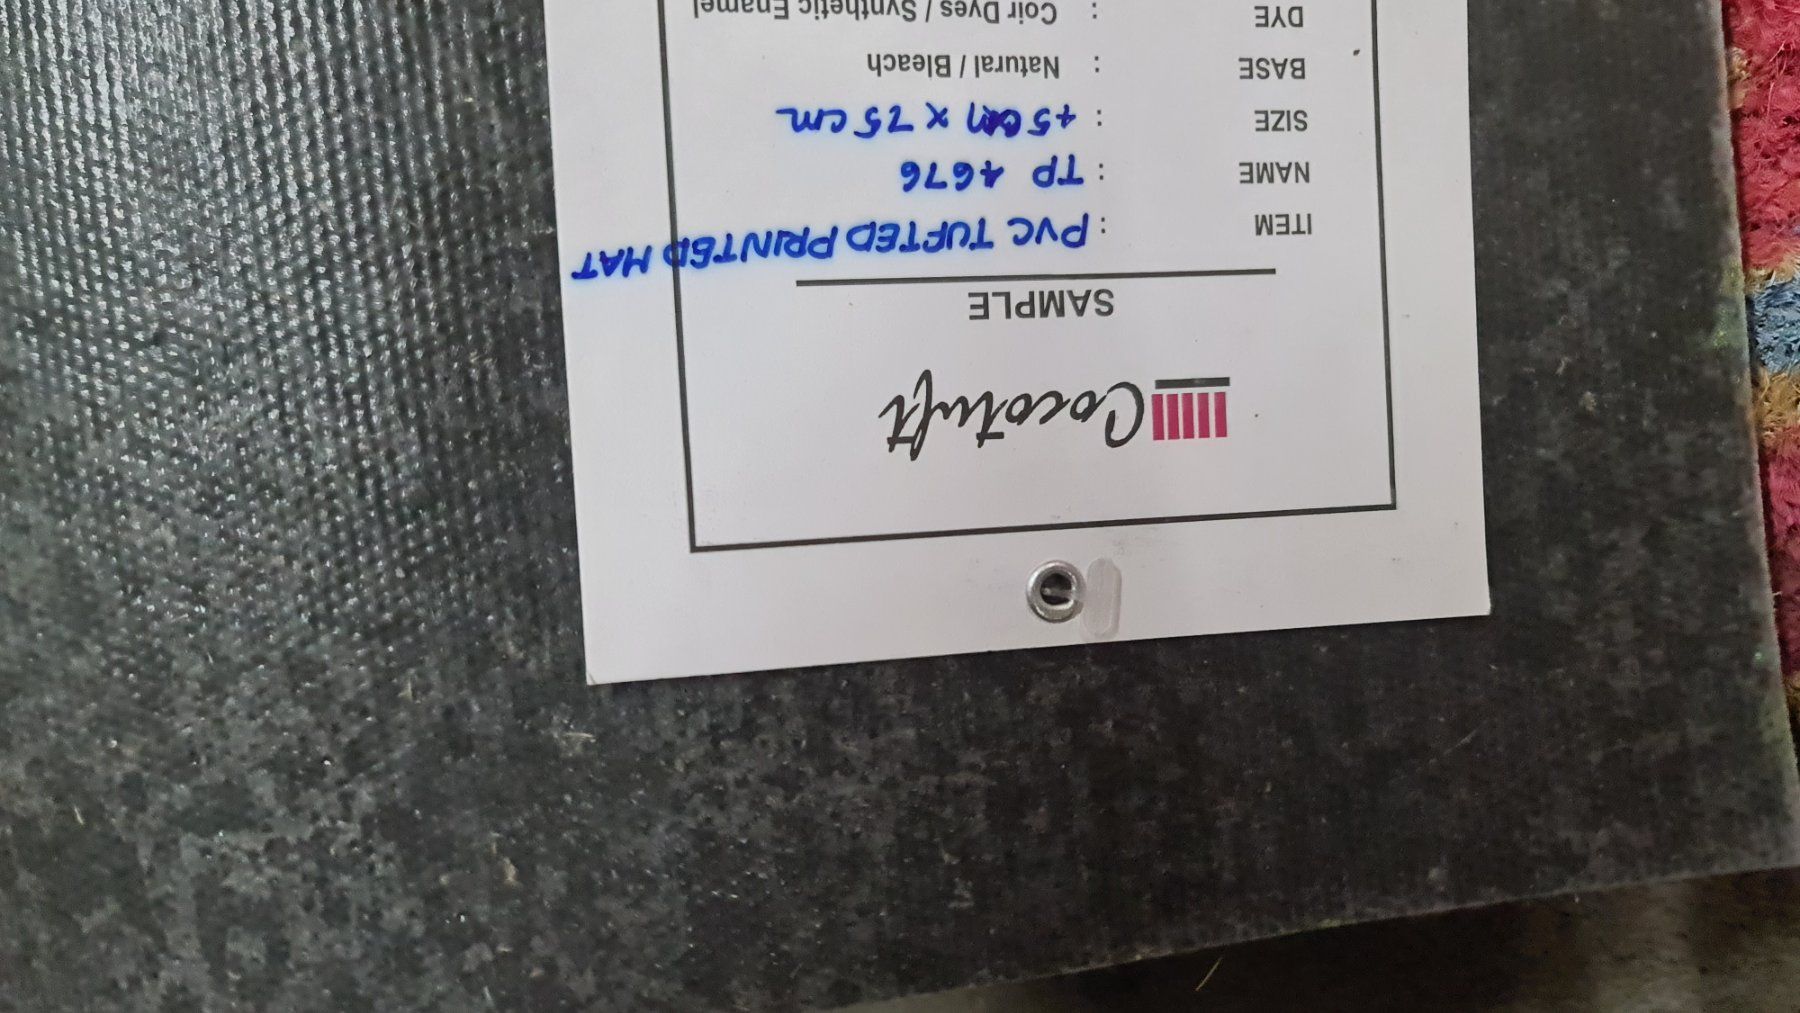 Cocotuft
SAMPLE
ITEM : PVC TUFTED PRINTED MAT
NAME : TP 4676
SIZE : 45 cm x 75 cm
BASE : Natural / Bleach
DYE : Coir Dyes / Synthetic Enamel